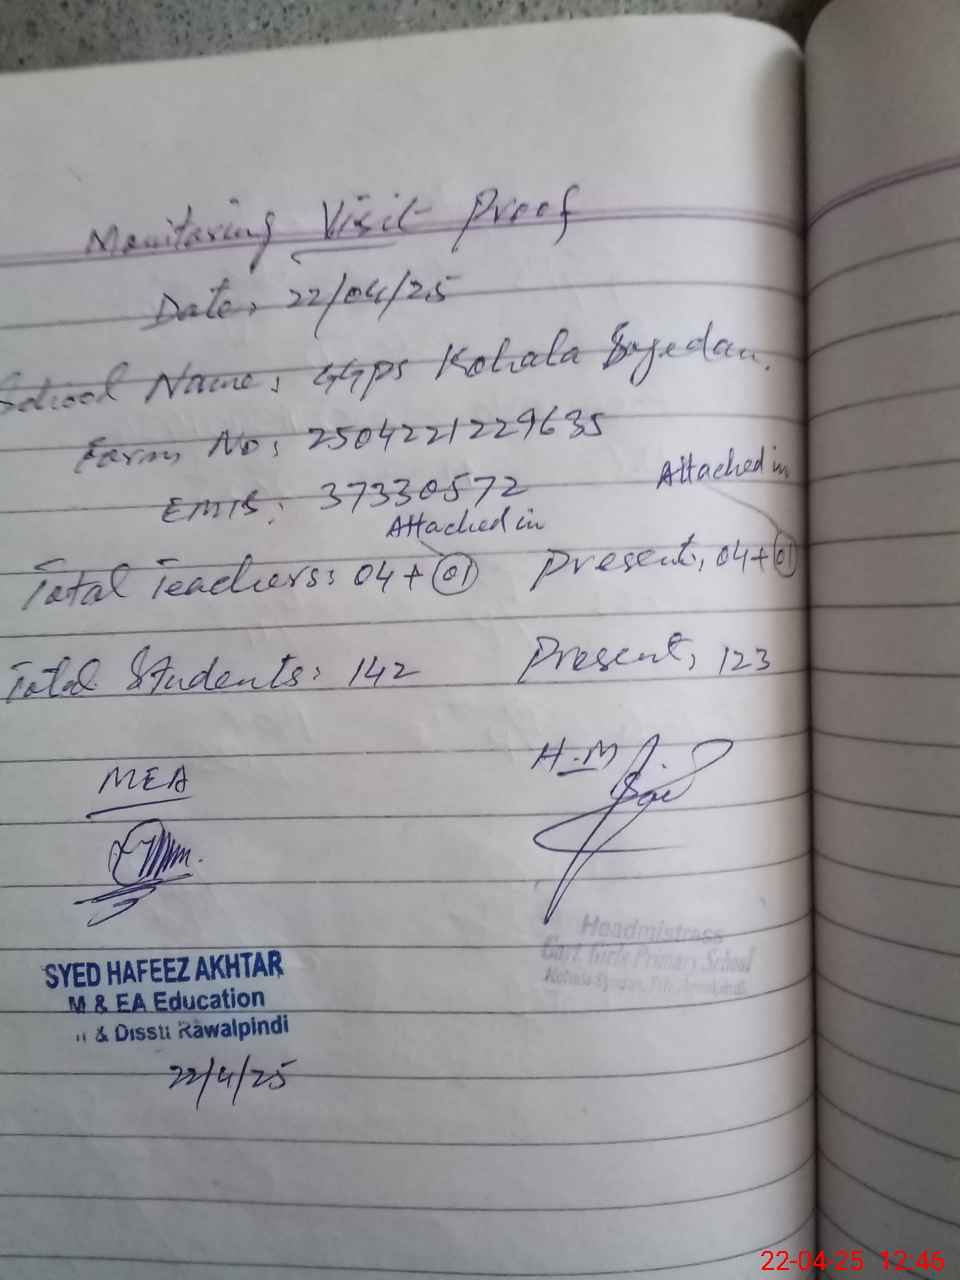 Monitoring Visit Proof
Date: 22/04/25
School Name: GGPS Kohala Syedan.
Form No: 2504221229635
Attached in
EMIS: 37330572
Attached in
Total Teachers: 04 + 01 Present: 04 + 01
Total Students: 142 Present: 123
MEA
H.M
Headmistress
Govt. Girls Primary School
SYED HAFEEZ AKHTAR
M & EA Education
& Disstt Rawalpindi
22/4/25
22-04-25 12:46